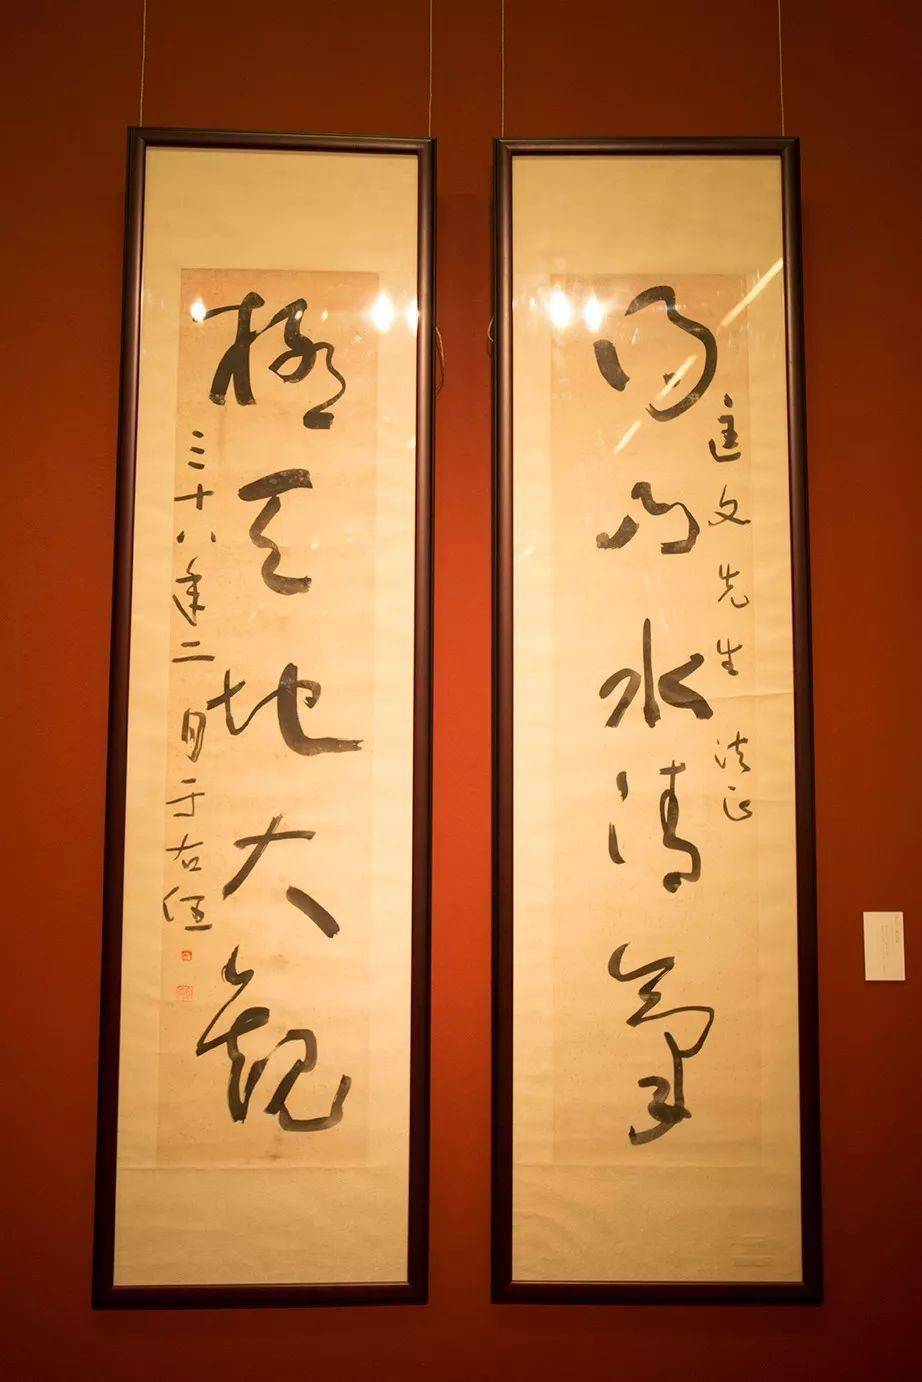 得山水清气
匡文先生 法正
极天地大观
三十八年二月于右任